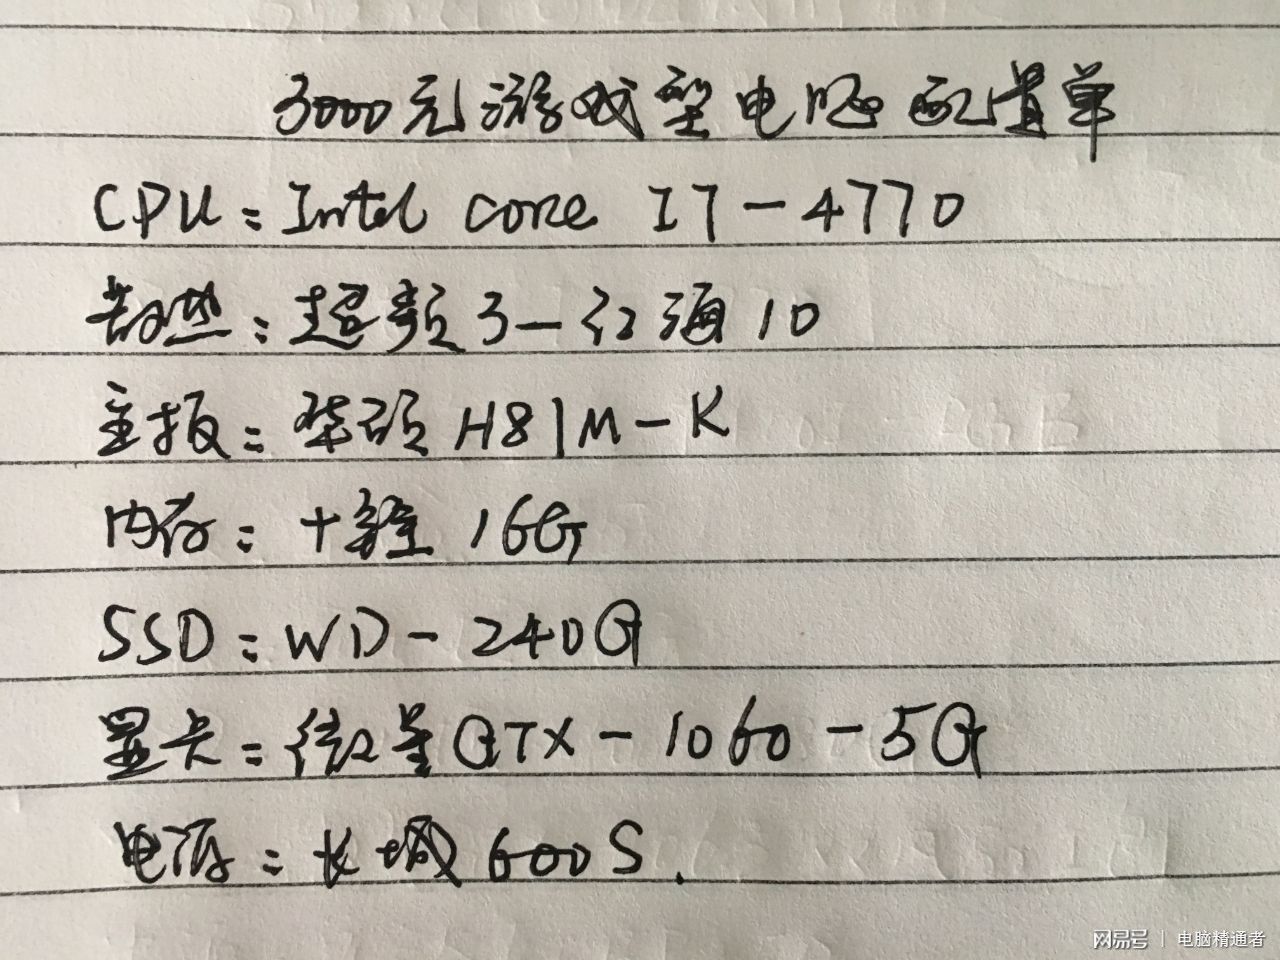 3000元游戏型电脑配置单
CPU：Intel core I7-4770
散热：超频3-红海10
主板：华硕H81M-K
内存：十铨16G
SSD：WD-240G
显卡：微星GTX-1060-5G
电源：长城600S.
网易号 | 电脑精通者